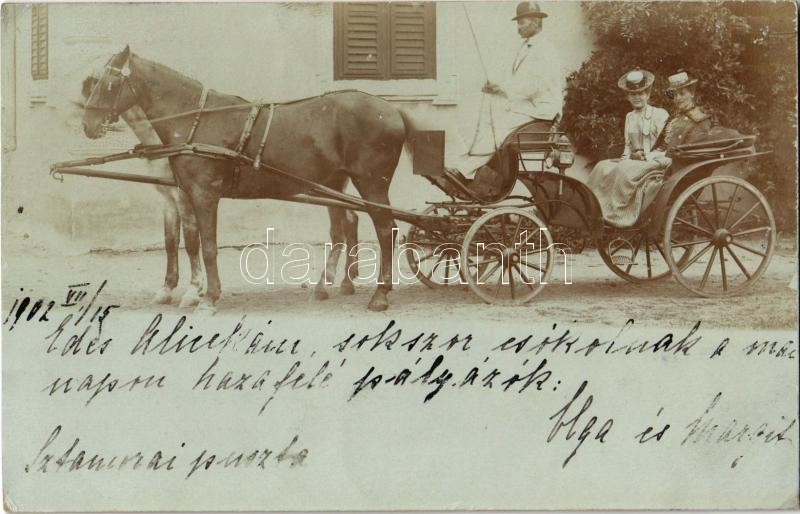 darabanth
1902 VII/15
Edes Alinkám, sokszor csókolnak a mai
napon hazafelé pályázók:
Olga és Margit
Sztamorai puszta